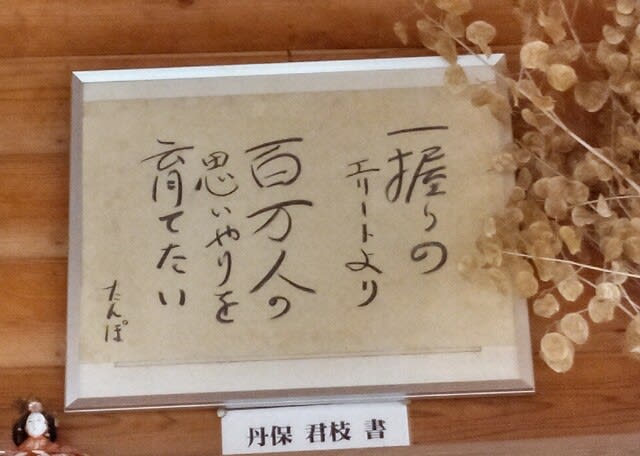 一握りの
エリートより
百万人の
思いやりを
育てたい
たんぽ
丹保 君枝 書